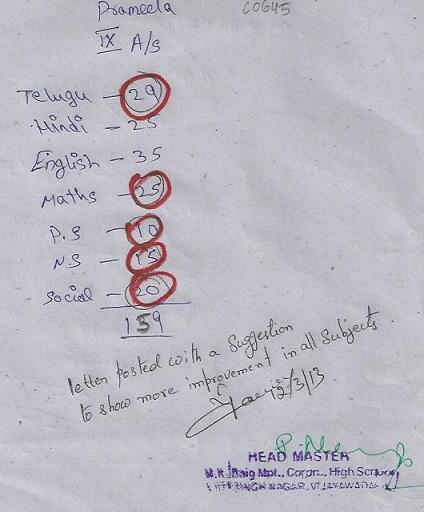 Prameela
C0645
IX A/S
Telugu - 29
Hindi - 25
English - 35
Maths - 25
P.S - 10
N.S - 15
Social - 20
159
letter posted with a suggestion
to show more improvement in all Subjects.
12/3/13
HEAD MASTER
M.K. Baig Mpl., Corpn., High School
SINGH NAGAR, VIJAYAWADA